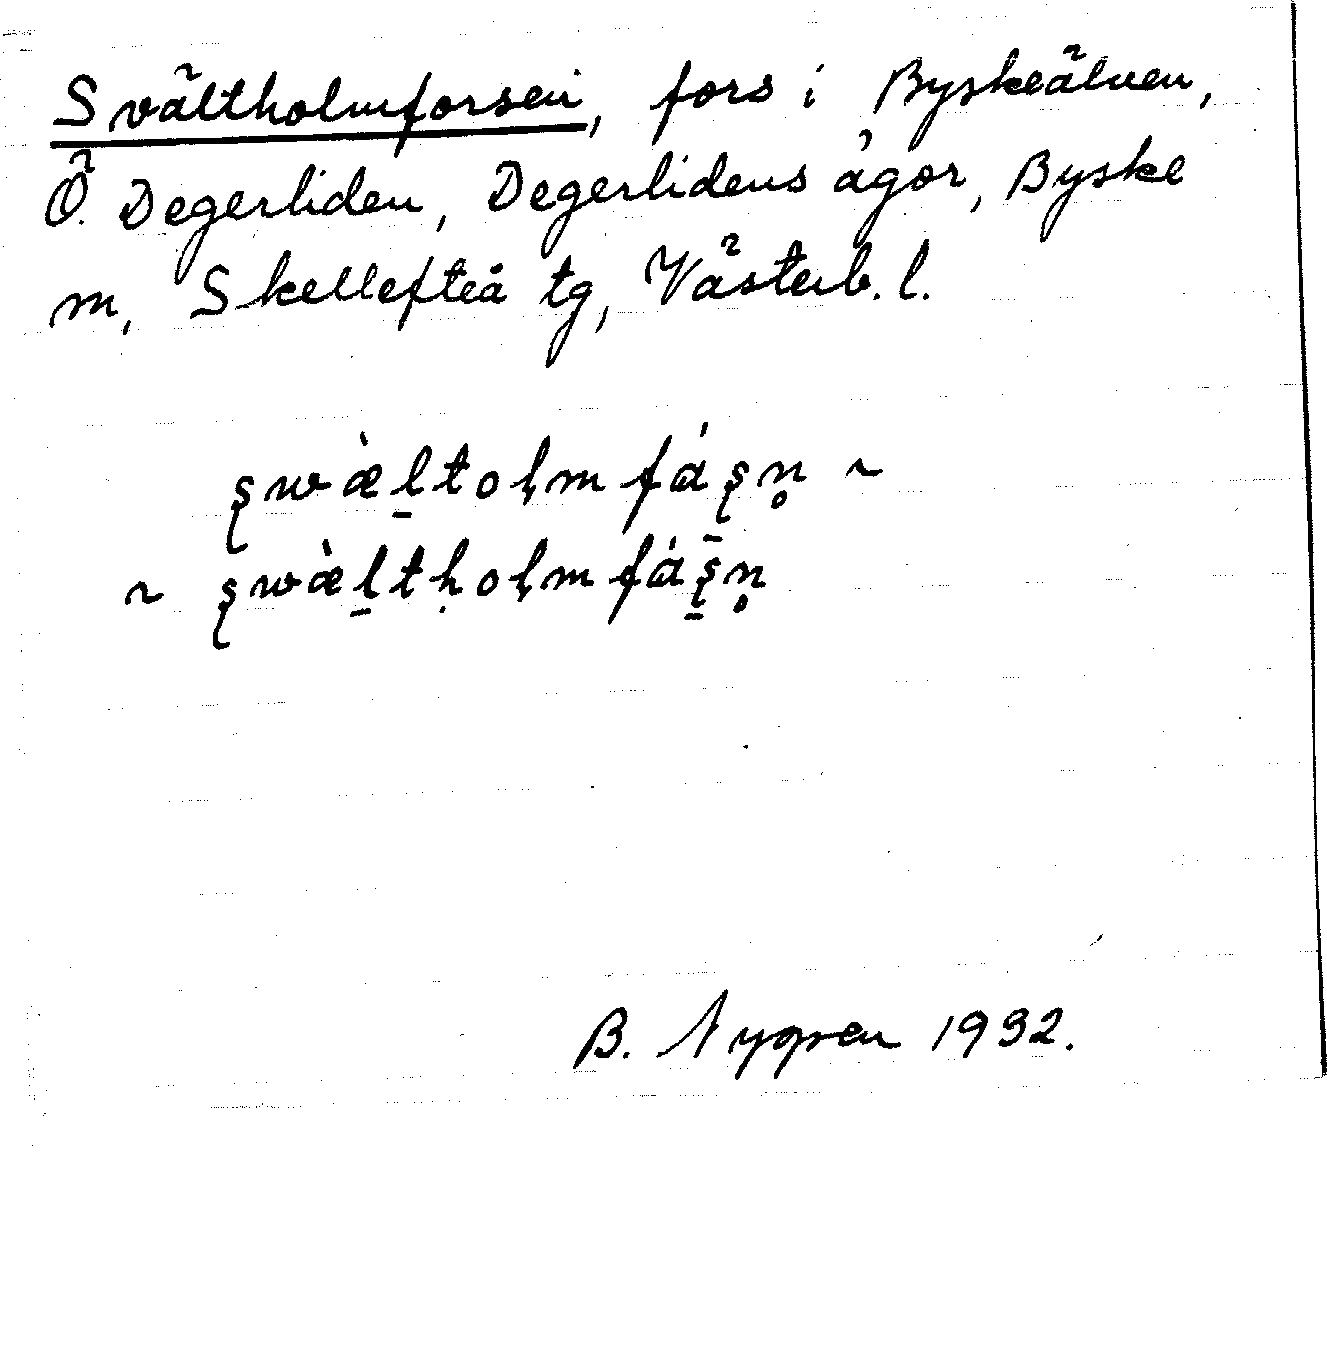 Svältholmforsen, fors i Byskeälven,
Ö. Degerliden, Degerlidens ägor, Byske
m, Skellefteå tg, Västerb. l.
ʂwæ̀l̠toḷmfáʂn̥ ~
~ ʂwæ̀l̠tḥoḷmfáʂ̠̄n̥
B. Nygren 1932.